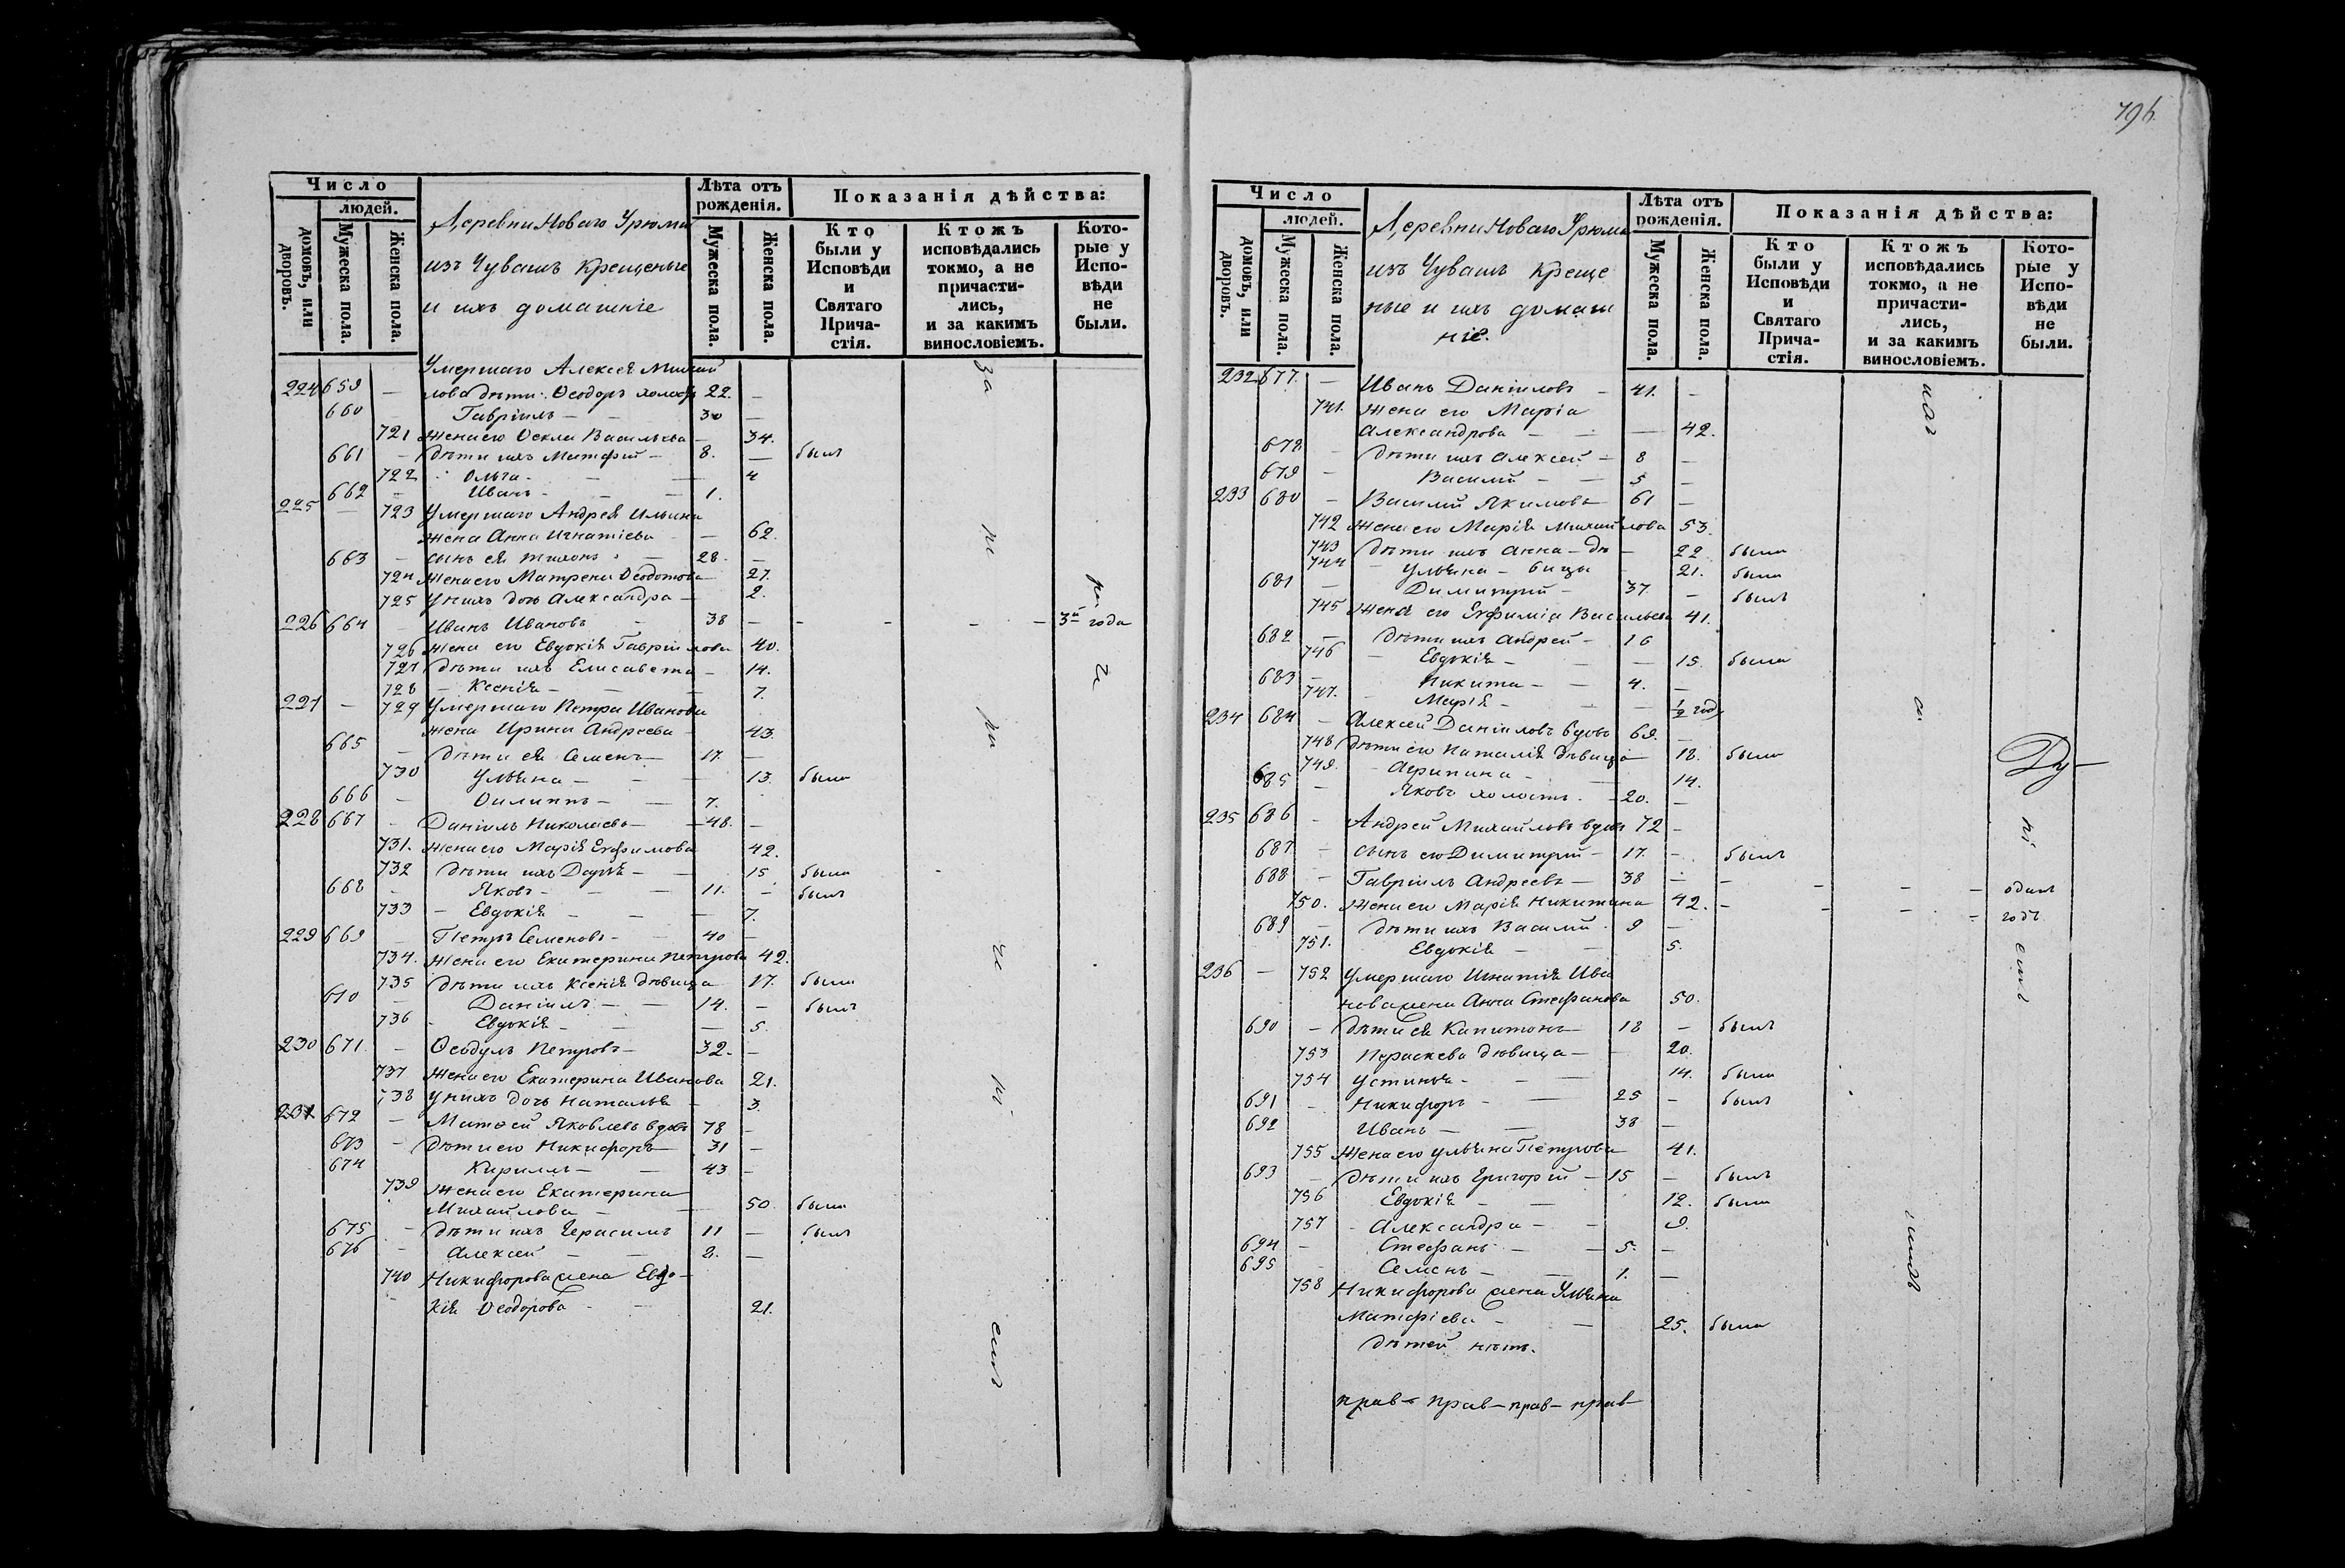 796.
Число
людей.
домовъ, или дворовъ.
Мужеска пола.
Женска пола.
Деревни Новаго Урюма
изъ Чувашъ крещеные
и ихъ домашніе
Лѣта отъ рожденія.
Мужеска пола.
Женска пола.
Показанія дѣйства:
Кто были у Исповѣди и Святаго Прича-стія.
Ктожъ исповѣдались токмо, а не причасти-лись, и за какимъ винословіемъ.
Кото-рые у Испо-вѣди не были.
Умершаго Алексея Михай
224 659 — лова дѣти: Ѳеодоръ холостъ 22. —
660 Гавріилъ — — 30 —
721 жена его Ѳекла Васильева — 34.
661 — дѣти ихъ Матфій — 8. — былъ
722 Ольга — — 4
662 — Иванъ — — 1.
225 — 723 Умершаго Андрея Ильина
жена Анна Игнатіева — 62.
663 — сынъ ея Тихонъ — 28. —
724 жена его Матрена Ѳеодотова — 27.
725 у нихъ дочь Александра — 2.
226 664 Иванъ Ивановъ — 38 — — — — — 3й года
726 жена его Евдокія Гавріилова 40.
727 дѣти ихъ Елисавета — 14.
728 — Ксенія — — — 7.
227 — 729 Умершаго Петра Иванова
жена Ирина Андреева — 43.
665 — дѣти ея Семенъ — 17. —
730 Ульяна — — — 13. была
666 — Филиппъ — — 7.
228 667 — Даніилъ Николаевъ — 48. —
731. жена его Марія Ефимова 42.
732 дѣти ихъ Дарья — — 15 была
668 — Яковъ — — 11. — былъ
733 — Евдокія — — — 7.
229 669 — Петръ Семеновъ — 40 —
734. жена его Екатерина Петрова 42.
735 дѣти ихъ Ксенія дѣвица 17. была
670 — Даніилъ — — 14. — былъ
736 — Евдокія — — — 5.
230 671. — Ѳеодулъ Петровъ — 32. —
737 жена его Екатерина Иванова 21.
738 у нихъ дочь Наталья — 3.
231. 672 — Матвей Яковлевъ вдовъ 78 —
673 — дѣти его Никифоръ — 31 —
674 Кириллъ — — 43 —
739 жена его Екатерина
Михайлова — — 50. была
675 — дѣти ихъ Герасимъ 11 — былъ
676 — Алексей — — 8. —
740 Никифорова жена Евдо-
кія Ѳеодорова — — 21.
Число
людей.
домовъ, или дворовъ.
Мужеска пола.
Женска пола.
Деревни Новаго Урюма
изъ Чувашъ креще
ные и ихъ домаш
ніе.
Лѣта отъ рожденія.
Мужеска пола.
Женска пола.
Показанія дѣйства:
Кто были у Исповѣди и Святаго Прича-стія.
Ктожъ исповѣдались токмо, а не причасти-лись, и за какимъ винословіемъ.
Кото-рые у Испо-вѣди не были.
232 677. — Иванъ Даніиловъ — 41. —
741. жена его Марія
Александрова — — — 42.
678 — дѣти ихъ Алексей — 8 —
679 — Василій — — 5 —
233 680 — Василій Якимовъ 61 —
742 жена его Марія Михайлова 53.
743 дѣти ихъ Анна — дѣ — 22 была
744 — Ульяна — вицы 21. была
681 — Димитрій — 37. — былъ
745 жена его Евфимія Васильева 41.
682 — дѣти ихъ Андрей — 16
746 — Евдокія — — — 15. была
683 — Никита — — 4. —
747. Марія — — — 1/2 года
234 684 — Алексей Даніиловъ вдовъ 69. —
748 дѣти его Наталія дѣвица 18. была
749. — Агрипина — 14.
685 — Яковъ холостъ. — 20. —
235 686 — Андрей Михайловъ вдовъ 72 —
687 — сынъ его Димитрій — 17. — былъ
688 — Гавріилъ Андреевъ — 38 — — — — — одинъ
750. жена его Марія Никитина 42. — — — — годъ
689 — дѣти ихъ Василій 9 —
751. Евдокія — — 5.
236 — 752 Умершаго Игнатія Ива
нова жена Анна Стефанова 50.
690 — дѣти ея Капитонъ — 18 — былъ
753 Параскева дѣвица — 20.
754 Устинья — — — 14. была
691 — Никифоръ — — 25 — былъ
692 Иванъ — — 38 —
755 жена его Ульяна Петрова 41.
693 — дѣти ихъ Григорій — 15 — былъ
756 Евдокія — — 12. была
757 — Александра — — 9.
694 — Стефанъ — — 5. —
695 Семенъ — — 1. —
758 Никифорова жена Ульяна
Матфіева — — 25. была
дѣтей нѣтъ.
прав — прав — прав — прав